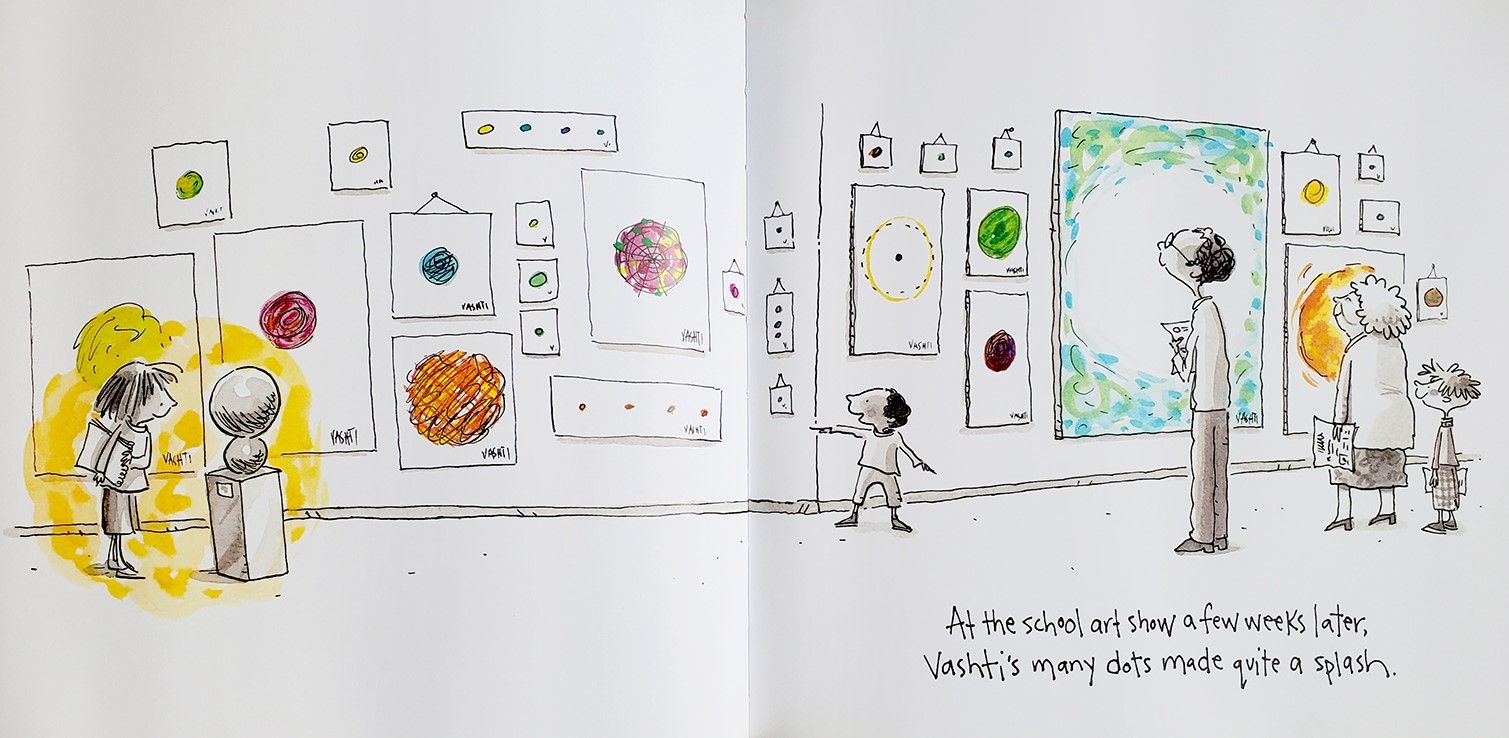 VASHTI
VASHTI
VASHTI
VASHTI
VASHTI
VASHTI
VASHTI
VASHTI
VASHTI
VASHTI
VASHTI
At the school art show a few weeks later,
Vashti's many dots made quite a splash.